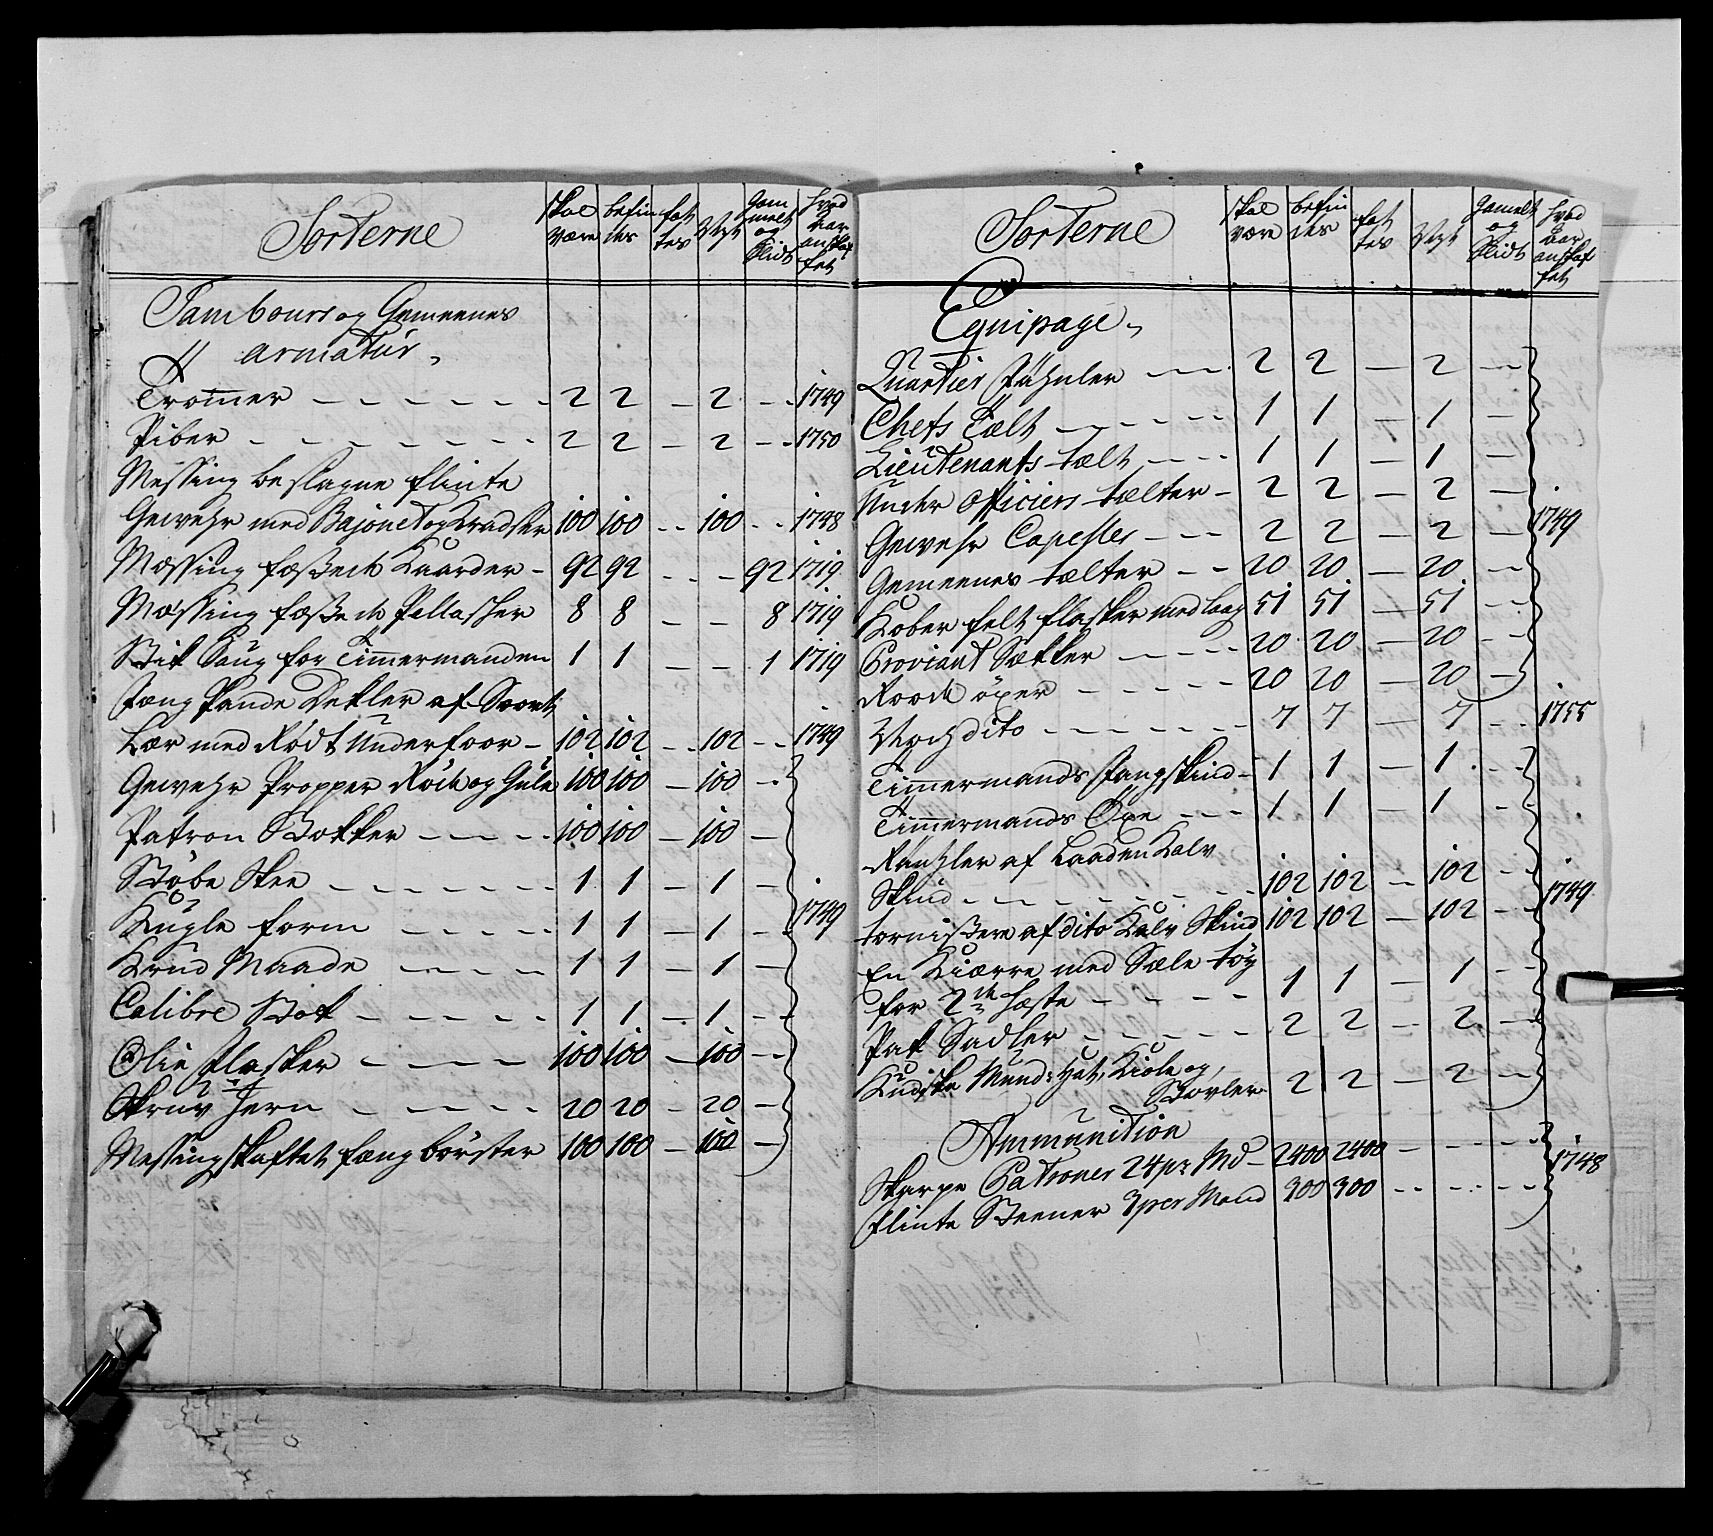 Sorterne | skal være | befin des | fat tes | Nyt | Gam melt og Slidt | hvad Aar anskaf fet
Tambours og Gemeenes
armatur,
Trommer | 2 | 2 | — | 2 | — | 1749
Piber | 2 | 2 | — | 2 | — | 1750
Messing beslagne flinte
Gewehr med Bajonet og Kradser | 100 | 100 | — | 100 | — | 1748
Messing fæstede Kaarder | 92 | 92 | — | — | 92 | 1719
Messing fæstede Pallasher | 8 | 8 | — | — | 8 | 1719
Stik Saug for Timmermanden | 1 | 1 | — | — | 1 | 1719
fæng Pande Dekler af Svart
Lær med Rødt Underfoor | 102 | 102 | — | 102 | — | 1749
Gewehr Propper Røde og Gule | 100 | 100 | — | 100 | —
Patron Bokker | 100 | 100 | — | 100 | —
Støbe Skee | 1 | 1 | — | 1 | —
Kugle form | 1 | 1 | — | 1 | — | 1749
Krud Maade | 1 | 1 | — | 1 | —
Calibre Stok | 1 | 1 | — | 1 | —
Olie flasker | 100 | 100 | — | 100 | —
Skruv Jern | 20 | 20 | — | 20 | —
Messing skaftet fæng børster | 100 | 100 | — | 100 | —
Sorterne | skal være | befin des | fat tes | Nyt | Gamelt og Slidt | hvad Aar anskaf fet
Equipage,
Quartier fähnler | 2 | 2 | — | 2 | —
Chefs Tælt | 1 | 1 | — | 1 | —
Lieutenants tælt | 1 | 1 | — | 1 | —
Under Officiers tælter | 2 | 2 | — | 2 | —
Gewehr Capeller | 2 | 2 | — | 2 | — | 1749
Gemeenes tælter | 20 | 20 | — | 20 | —
Kober felt flasker med laag | 51 | 51 | — | 51 | —
Proviant Sækker | 20 | 20 | — | 20 | —
Røode öxer | 20 | 20 | — | 20 | —
Nye dito | 7 | 7 | — | 7 | — | 1755
Timmermands fangskind | 1 | 1 | — | 1 | —
Timmermands Öxe | 1 | 1 | — | 1 | —
Räntzler af Laaden Kalv
Skind | 102 | 102 | — | 102 | — | 1749
tornistere af dito Kalv Skind | 102 | 102 | — | 102 | —
En Kiærre med Sæle tøy
for 2de hæste | 1 | 1 | — | 1 | —
Pak Sadler | 2 | 2 | — | 2 | —
Kudske Mund: Hat, Kiole og,
Støvler | 2 | 2 | — | 2 | —
Ammunition
Skarpe Patroner 24 pr Md | 2400 | 2400 | — | — | — | 1748
flinte Steener 3 per Mand | 300 | 300 | — | — | —